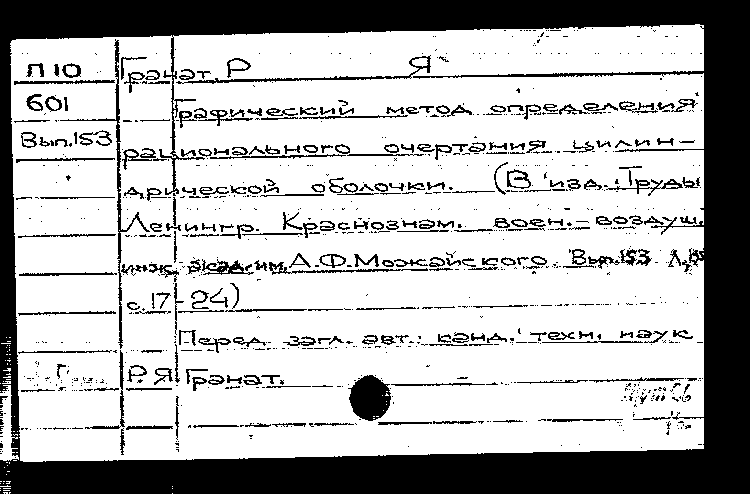 П 10 Гранат, Р Я
601 Графический метод определения
Вып.153 рационального очертания цилин-
дрической оболочки. (В изд.: Труды
Ленингр. Краснознам. воен.-воздуш.
инж. акад. им. А.Ф.Можайского. Вып.153 Л.,
с.17-24)
Перед загл. авт.: канд. техн. наук
Р.Я. Гранат.